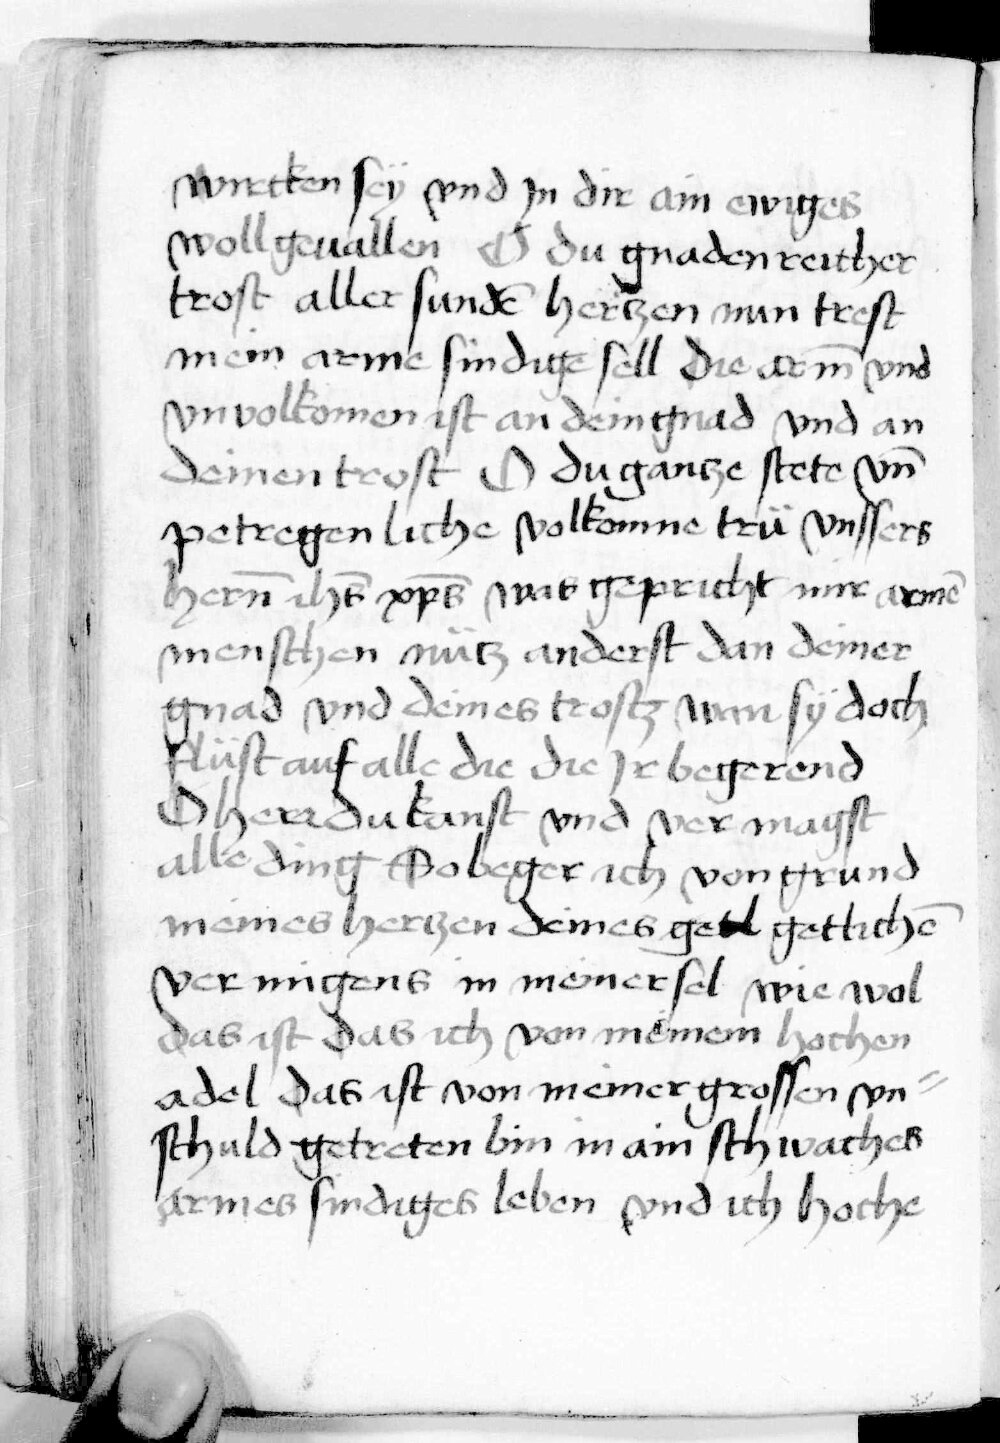 wircken sey vnd In dir ain ewiges
wollgeuallen O du gnadenreicher
trost aller sundē hertzen nun trest
mein arme sindige sell die arm̄ vnd
vnvolkomen ist an dein gnad vnd an
deinen trost O du gantze stete vn̄
petregenliche volkomne trü vnssers
hern̄ ihs̄ xp̄s was gepricht mir armē
menschen nütz anderst dan deiner
gnad vnd deines trostz wan sÿ doch
flüst auf alle die die Ir begerend
O herr du kanst vnd vermagst
alle ding So beger ich von grund
meines hertzen deines getl getlichē
vermigens in meiner sel wie wol
das ist das ich von meinem hochen
adel das ist von meiner grossen vn=
schuld getreten bin in ain schwaches
armes sindiges leben vnd ich hoche